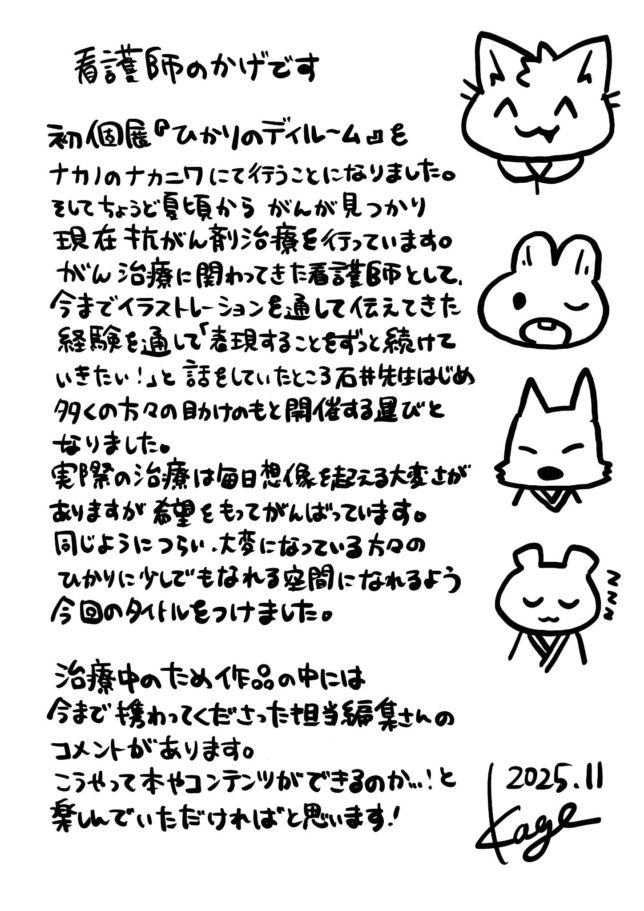 看護師のかげです
初個展『ひかりのデイルーム』を
ナカノのナカニワにて行うことになりました。
そしてちょうど夏頃から がんが見つかり
現在 抗がん剤治療を行っています。
がん治療に関わってきた看護師として、
今までイラストレーションを通して伝えてきた
経験を通して「表現することをずっと続けて
いきたい!」と話をしていたところ石井先生はじめ
多くの方々の助けのもと開催する運びと
なりました。
実際の治療は毎日想像を超える大変さが
ありますが希望をもってがんばっています。
同じようにつらい、大変になっている方々の
ひかりに少しでもなれる空間になれるよう
今回のタイトルをつけました。
治療中のため作品の中には
今まで携わってくださった担当編集さんの
コメントがあります。
こうやって本やコンテンツができるのか…!と
楽しんでいただければと思います!
zzz
2025.11
Kage